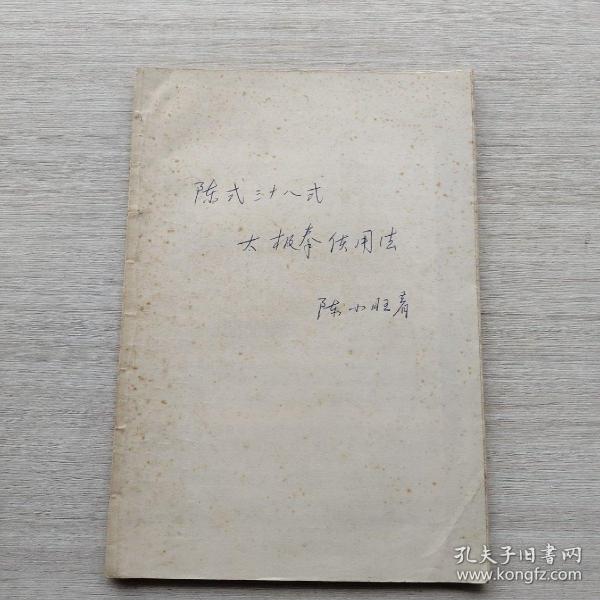 陈式三十八式
太极拳使用法
陈小旺着
孔夫子旧書网
www.kongfz.com